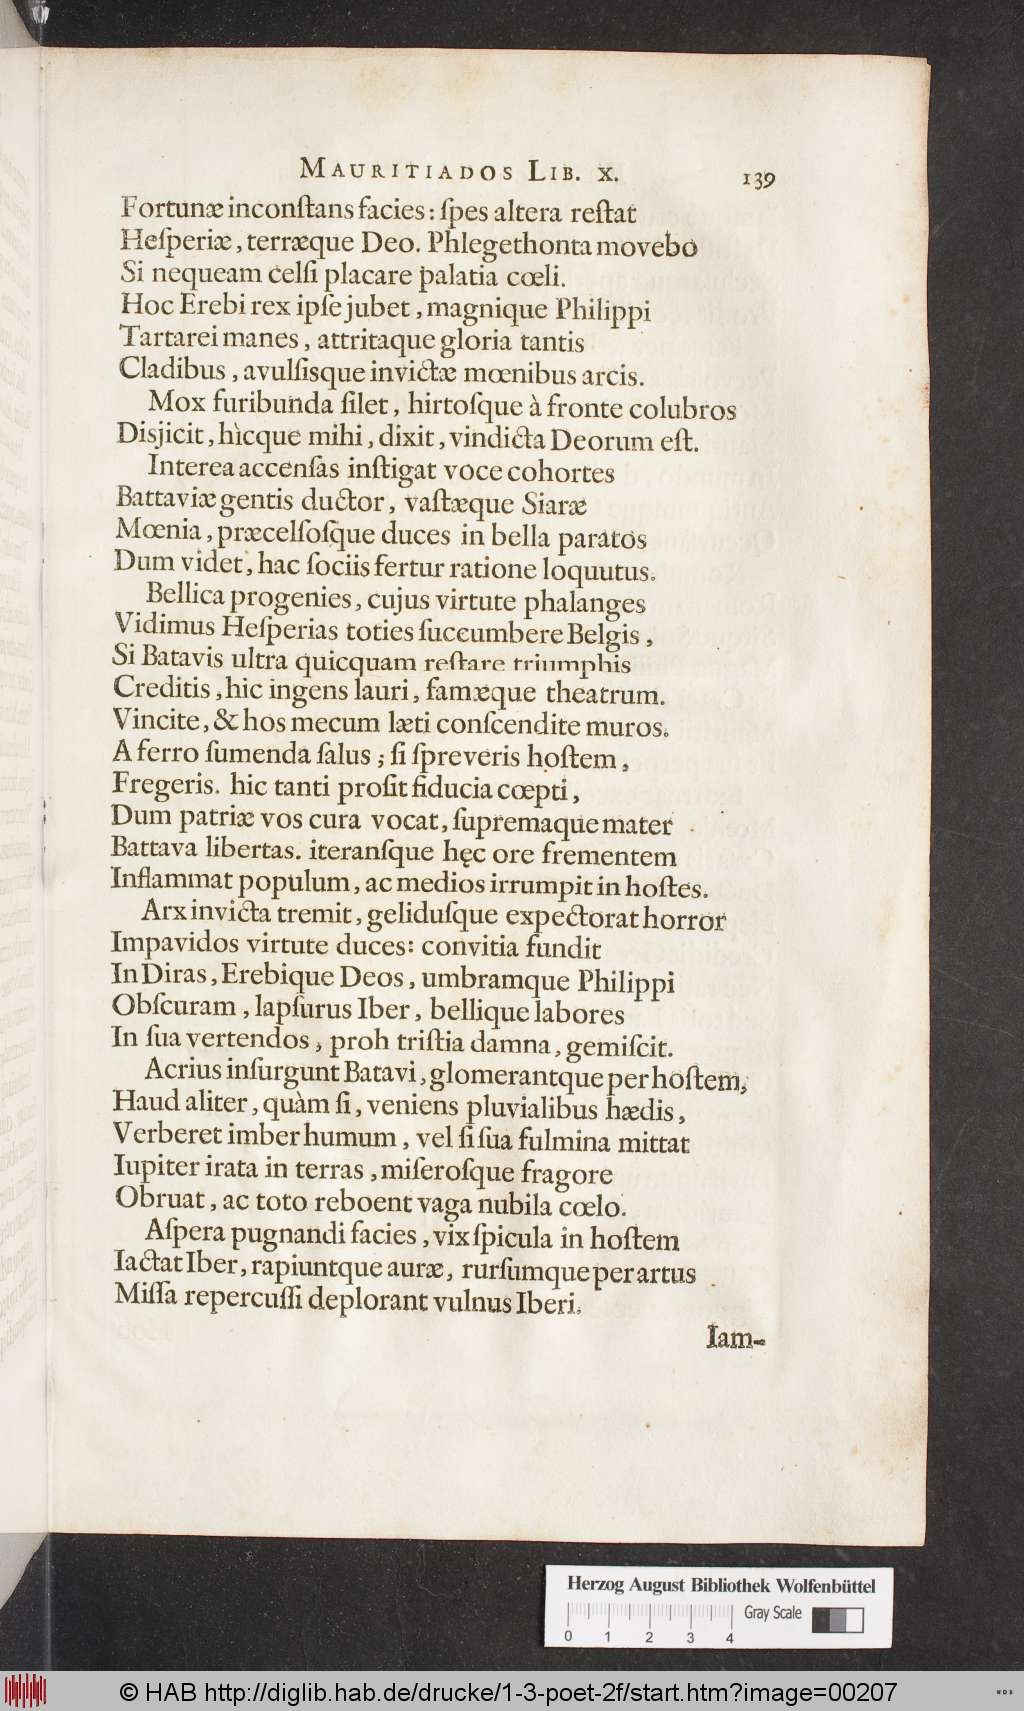 MAURITIADOS LIB. X. 139
Fortunæ inconſtans facies: ſpes altera reſtat
Heſperiæ, terræque Deo. Phlegethonta movebo
Si nequeam celſi placare palatia cœli.
Hoc Erebi rex ipſe jubet, magnique Philippi
Tartarei manes, attritaque gloria tantis
Cladibus, avulſisque invictæ mœnibus arcis.
Mox furibunda ſilet, hirtoſque à fronte colubros
Disjicit, hìcque mihi, dixit, vindicta Deorum eſt.
Interea accenſas inſtigat voce cohortes
Battaviæ gentis ductor, vaſtæque Siaræ
Mœnia, præcelſoſque duces in bella paratos
Dum videt, hac ſociis fertur ratione loquutus.
Bellica progenies, cujus virtute phalanges
Vidimus Heſperias toties ſuccumbere Belgis,
Si Batavis ultra quicquam reſtare triumphis
Creditis, hic ingens lauri, famæque theatrum.
Vincite, & hos mecum læti conſcendite muros.
A ferro ſumenda ſalus; ſi ſpreveris hoſtem,
Fregeris. hic tanti proſit fiducia cœpti,
Dum patriæ vos cura vocat, ſupremaque mater
Battava libertas. iteranſque hęc ore frementem
Inflammat populum, ac medios irrumpit in hoſtes.
Arx invicta tremit, geliduſque expectorat horror
Impavidos virtute duces: convitia fundit
In Diras, Erebique Deos, umbramque Philippi
Obſcuram, lapſurus Iber, bellique labores
In ſua vertendos, proh triſtia damna, gemiſcit.
Acrius inſurgunt Batavi, glomerantque per hoſtem,
Haud aliter, quàm ſi, veniens pluvialibus hædis,
Verberet imber humum, vel ſi ſua fulmina mittat
Iupiter irata in terras, miſeroſque fragore
Obruat, ac toto reboent vaga nubila cœlo.
Aſpera pugnandi facies, vix ſpicula in hoſtem
Iactat Iber, rapiuntque auræ, rurſumque per artus
Miſſa repercuſſi deplorant vulnus Iberi.
Iam-
Herzog August Bibliothek Wolfenbüttel
Gray Scale
0 1 2 3 4
© HAB http://diglib.hab.de/drucke/1-3-poet-2f/start.htm?image=00207